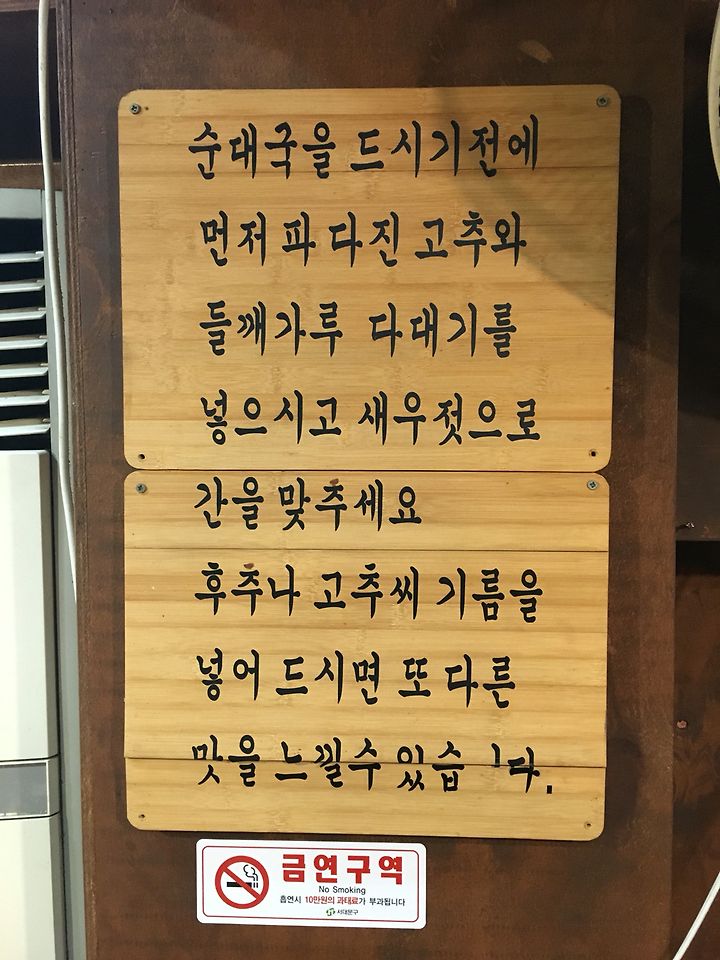 순대국을 드시기전에
먼저 파 다진 고추와
들깨가루 다대기를
넣으시고 새우젓으로
간을 맞추세요
후추나 고추씨 기름을
넣어 드시면 또 다른
맛을 느낄수 있습니다.
금연구역
No Smoking
흡연시 10만원의 과태료가 부과됩니다
서대문구